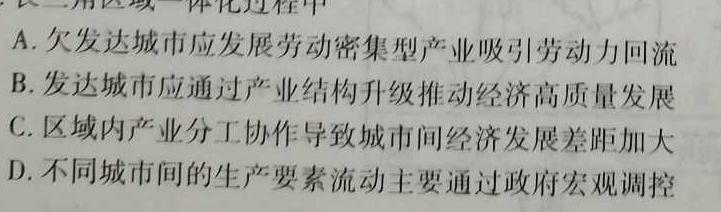 长三角区域一体化过程中
A. 欠发达城市应发展劳动密集型产业吸引劳动力回流
B. 发达城市应通过产业结构升级推动经济高质量发展
C. 区域内产业分工协作导致城市间经济发展差距加大
D. 不同城市间的生产要素流动主要通过政府宏观调控